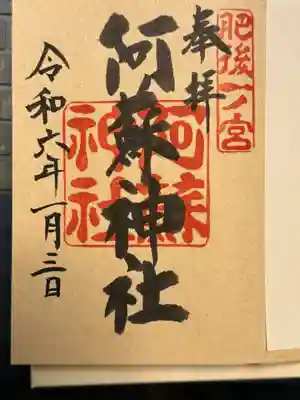 肥後一ノ宮
奉拝
阿蘇神社
阿蘇神社
令和六年一月三日